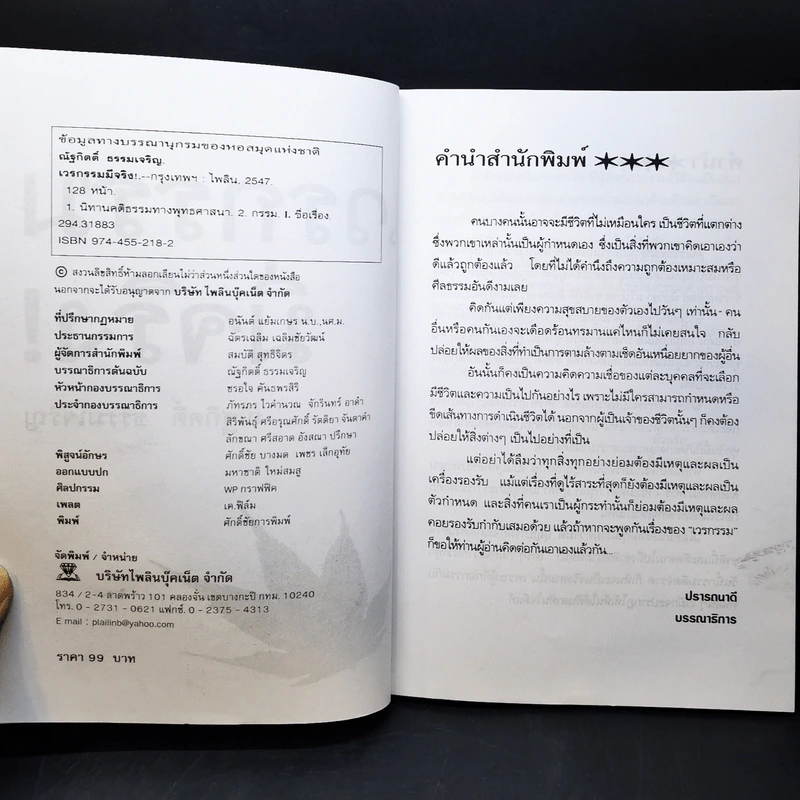 ข้อมูลทางบรรณานุกรมของหอสมุดแห่งชาติ
ณัฐกิตติ์ ธรรมเจริญ.
เวรกรรมมีจริง!.--กรุงเทพฯ : ไพลิน, 2547.
128 หน้า.
1. นิทานคติธรรมทางพุทธศาสนา. 2. กรรม. I. ชื่อเรื่อง.
294.31883
ISBN 974-455-218-2
© สงวนลิขสิทธิ์ห้ามลอกเลียนไม่ว่าส่วนหนึ่งส่วนใดของหนังสือ
นอกจากจะได้รับอนุญาตจาก บริษัท ไพลินบุ๊คเน็ต จำกัด
ที่ปรึกษากฎหมาย อนันต์ แย้มเกษร น.บ.,นศ.ม.
ประธานกรรมการ ฉัตรเฉลิม เฉลิมชัยวัฒน์
ผู้จัดการสำนักพิมพ์ สมบัติ สุทธิจิตร
บรรณาธิการต้นฉบับ ณัฐกิตติ์ ธรรมเจริญ
หัวหน้ากองบรรณาธิการ ชรอใจ คันธพรสิริ
ประจำกองบรรณาธิการ ภัทรภร ไวคำนวณ จักรินทร์ อาดำ
สิริพันธุ์ ศรีอรุณศักดิ์ รัตติยา จันดาคำ
ลักขณา ศรีสอาด อังสณา ปรึกษา
พิสูจน์อักษร ศักดิ์ชัย บางมด เพชร เล็กอุทัย
ออกแบบปก มหาชาติ ใหม่สมสู
ศิลปกรรม WP กราฟฟิค
เพลต เค.ฟิล์ม
พิมพ์ ศักดิ์ชัยการพิมพ์
จัดพิมพ์ / จำหน่าย
บริษัทไพลินบุ๊คเน็ต จำกัด
834 / 2-4 ลาดพร้าว 101 คลองจั่น เขตบางกะปิ กทม. 10240
โทร. 0 - 2731 - 0621 แฟกซ์. 0 - 2375 - 4313
E mail : plailinb@yahoo.com
ราคา 99 บาท
คำนำสำนักพิมพ์ ✶✶✶
คนบางคนนั้นอาจจะมีชีวิตที่ไม่เหมือนใคร เป็นชีวิตที่แตกต่าง
ซึ่งพวกเขาเหล่านั้นเป็นผู้กำหนดเอง ซึ่งเป็นสิ่งที่พวกเขาคิดเอาเองว่า
ดีแล้วถูกต้องแล้ว โดยที่ไม่ได้คำนึงถึงความถูกต้องเหมาะสมหรือ
ศีลธรรมอันดีงามเลย
คิดกันแต่เพียงความสุขสบายของตัวเองไปวันๆ เท่านั้น - คน
อื่นหรือคนกันเองจะเดือดร้อนทรมานแค่ไหนก็ไม่เคยสนใจ กลับ
ปล่อยให้ผลของสิ่งที่ทำเป็นการตามล้างตามเช็ดอันเหนื่อยยากของผู้อื่น
อันนั้นก็คงเป็นความคิดความเชื่อของแต่ละบุคคลที่จะเลือก
มีชีวิตและความเป็นไปกันอย่างไร เพราะไม่มีใครสามารถกำหนดหรือ
ขีดเส้นทางการดำเนินชีวิตได้ นอกจากผู้เป็นเจ้าของชีวิตนั้นๆ ก็คงต้อง
ปล่อยให้สิ่งต่างๆ เป็นไปอย่างที่เป็น
แต่อย่าได้ลืมว่าทุกสิ่งทุกอย่างย่อมต้องมีเหตุและผลเป็น
เครื่องรองรับ แม้แต่เรื่องที่ดูไร้สาระที่สุดก็ยังต้องมีเหตุและผลเป็น
ตัวกำหนด และสิ่งที่คนเราเป็นผู้กระทำนั้นก็ย่อมต้องมีเหตุและผล
คอยรองรับกำกับเสมอด้วย แล้วถ้าหากจะพูดกันเรื่องของ "เวรกรรม"
ก็ขอให้ท่านผู้อ่านคิดต่อกันเอาเองแล้วกัน...
ปรารถนาดี
บรรณาธิการ